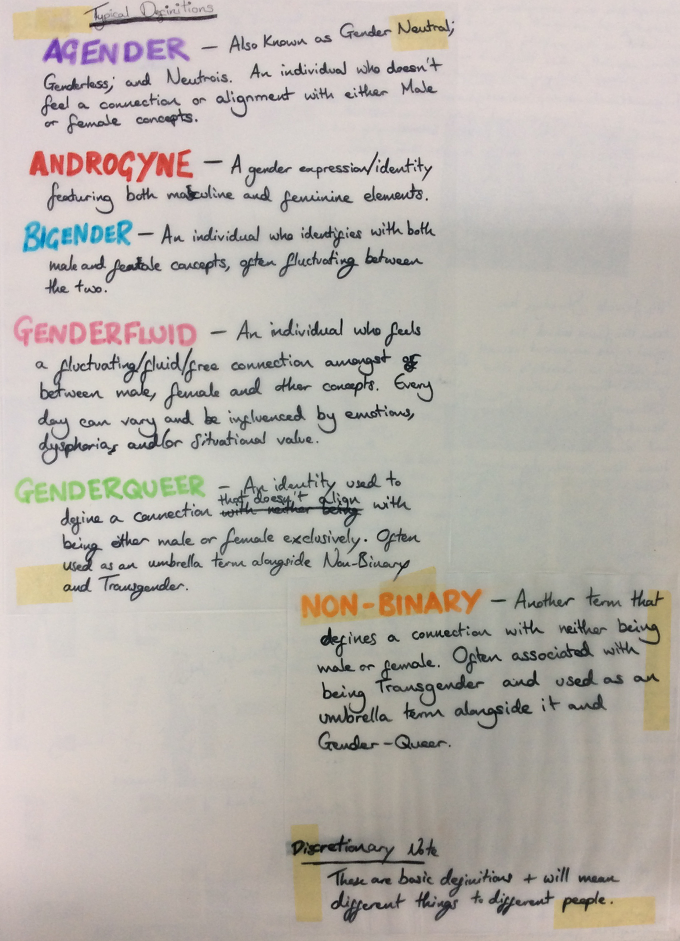 Typical Definitions
AGENDER – Also Known as Gender Neutral;
Genderless; and Neutrois. An individual who doesn't
feel a connection or alignment with either Male
or female concepts.
ANDROGYNE – A gender expression/identity
featuring both masculine and feminine elements.
BIGENDER – An individual who identifies with both
male and female concepts, often fluctuating between
the two.
GENDERFLUID – An individual who feels
a fluctuating/fluid/free connection amongst or
between male, female and other concepts. Every
day can vary and be influenced by emotions,
dysphoria, and/or situational value.
GENDERQUEER – An identity used to
that doesn't align
define a connection with neither being with
being either male or female exclusively. Often
used as an umbrella term alongside Non-Binary
and Transgender.
NON-BINARY – Another term that
defines a connection with neither being
male or female. Often associated with
being Transgender and used as an
umbrella term alongside it and
Gender-Queer.
Discretionary Note
These are basic definitions + will mean
different things to different people.